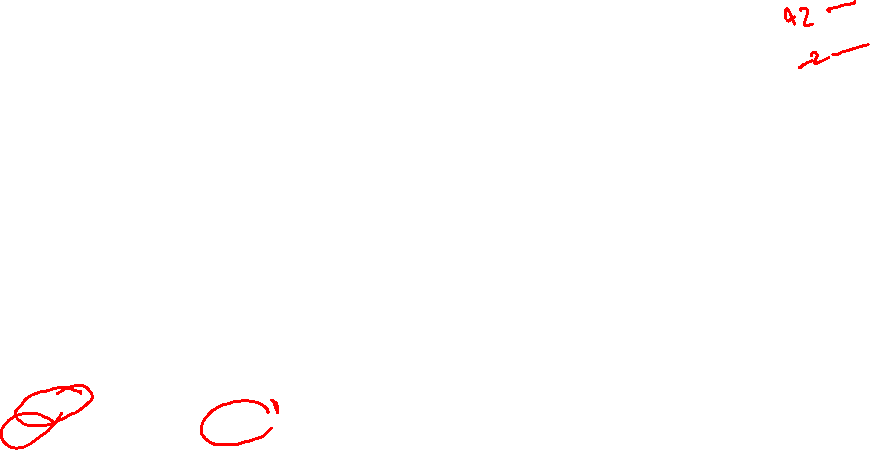 42 —
-2 —